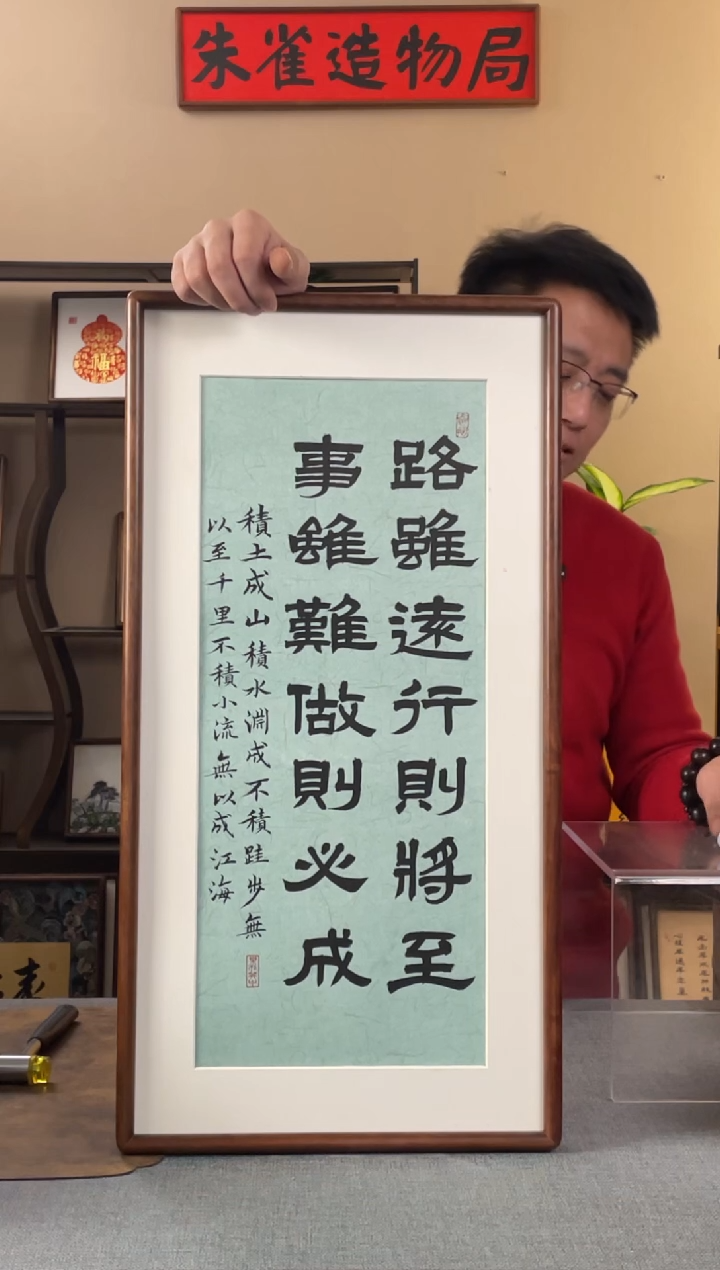 朱雀造物局
福
路雖遠行則將至
事雖難做則必成
積土成山積水淵成不積跬步無
以至千里不積小流無以成江海